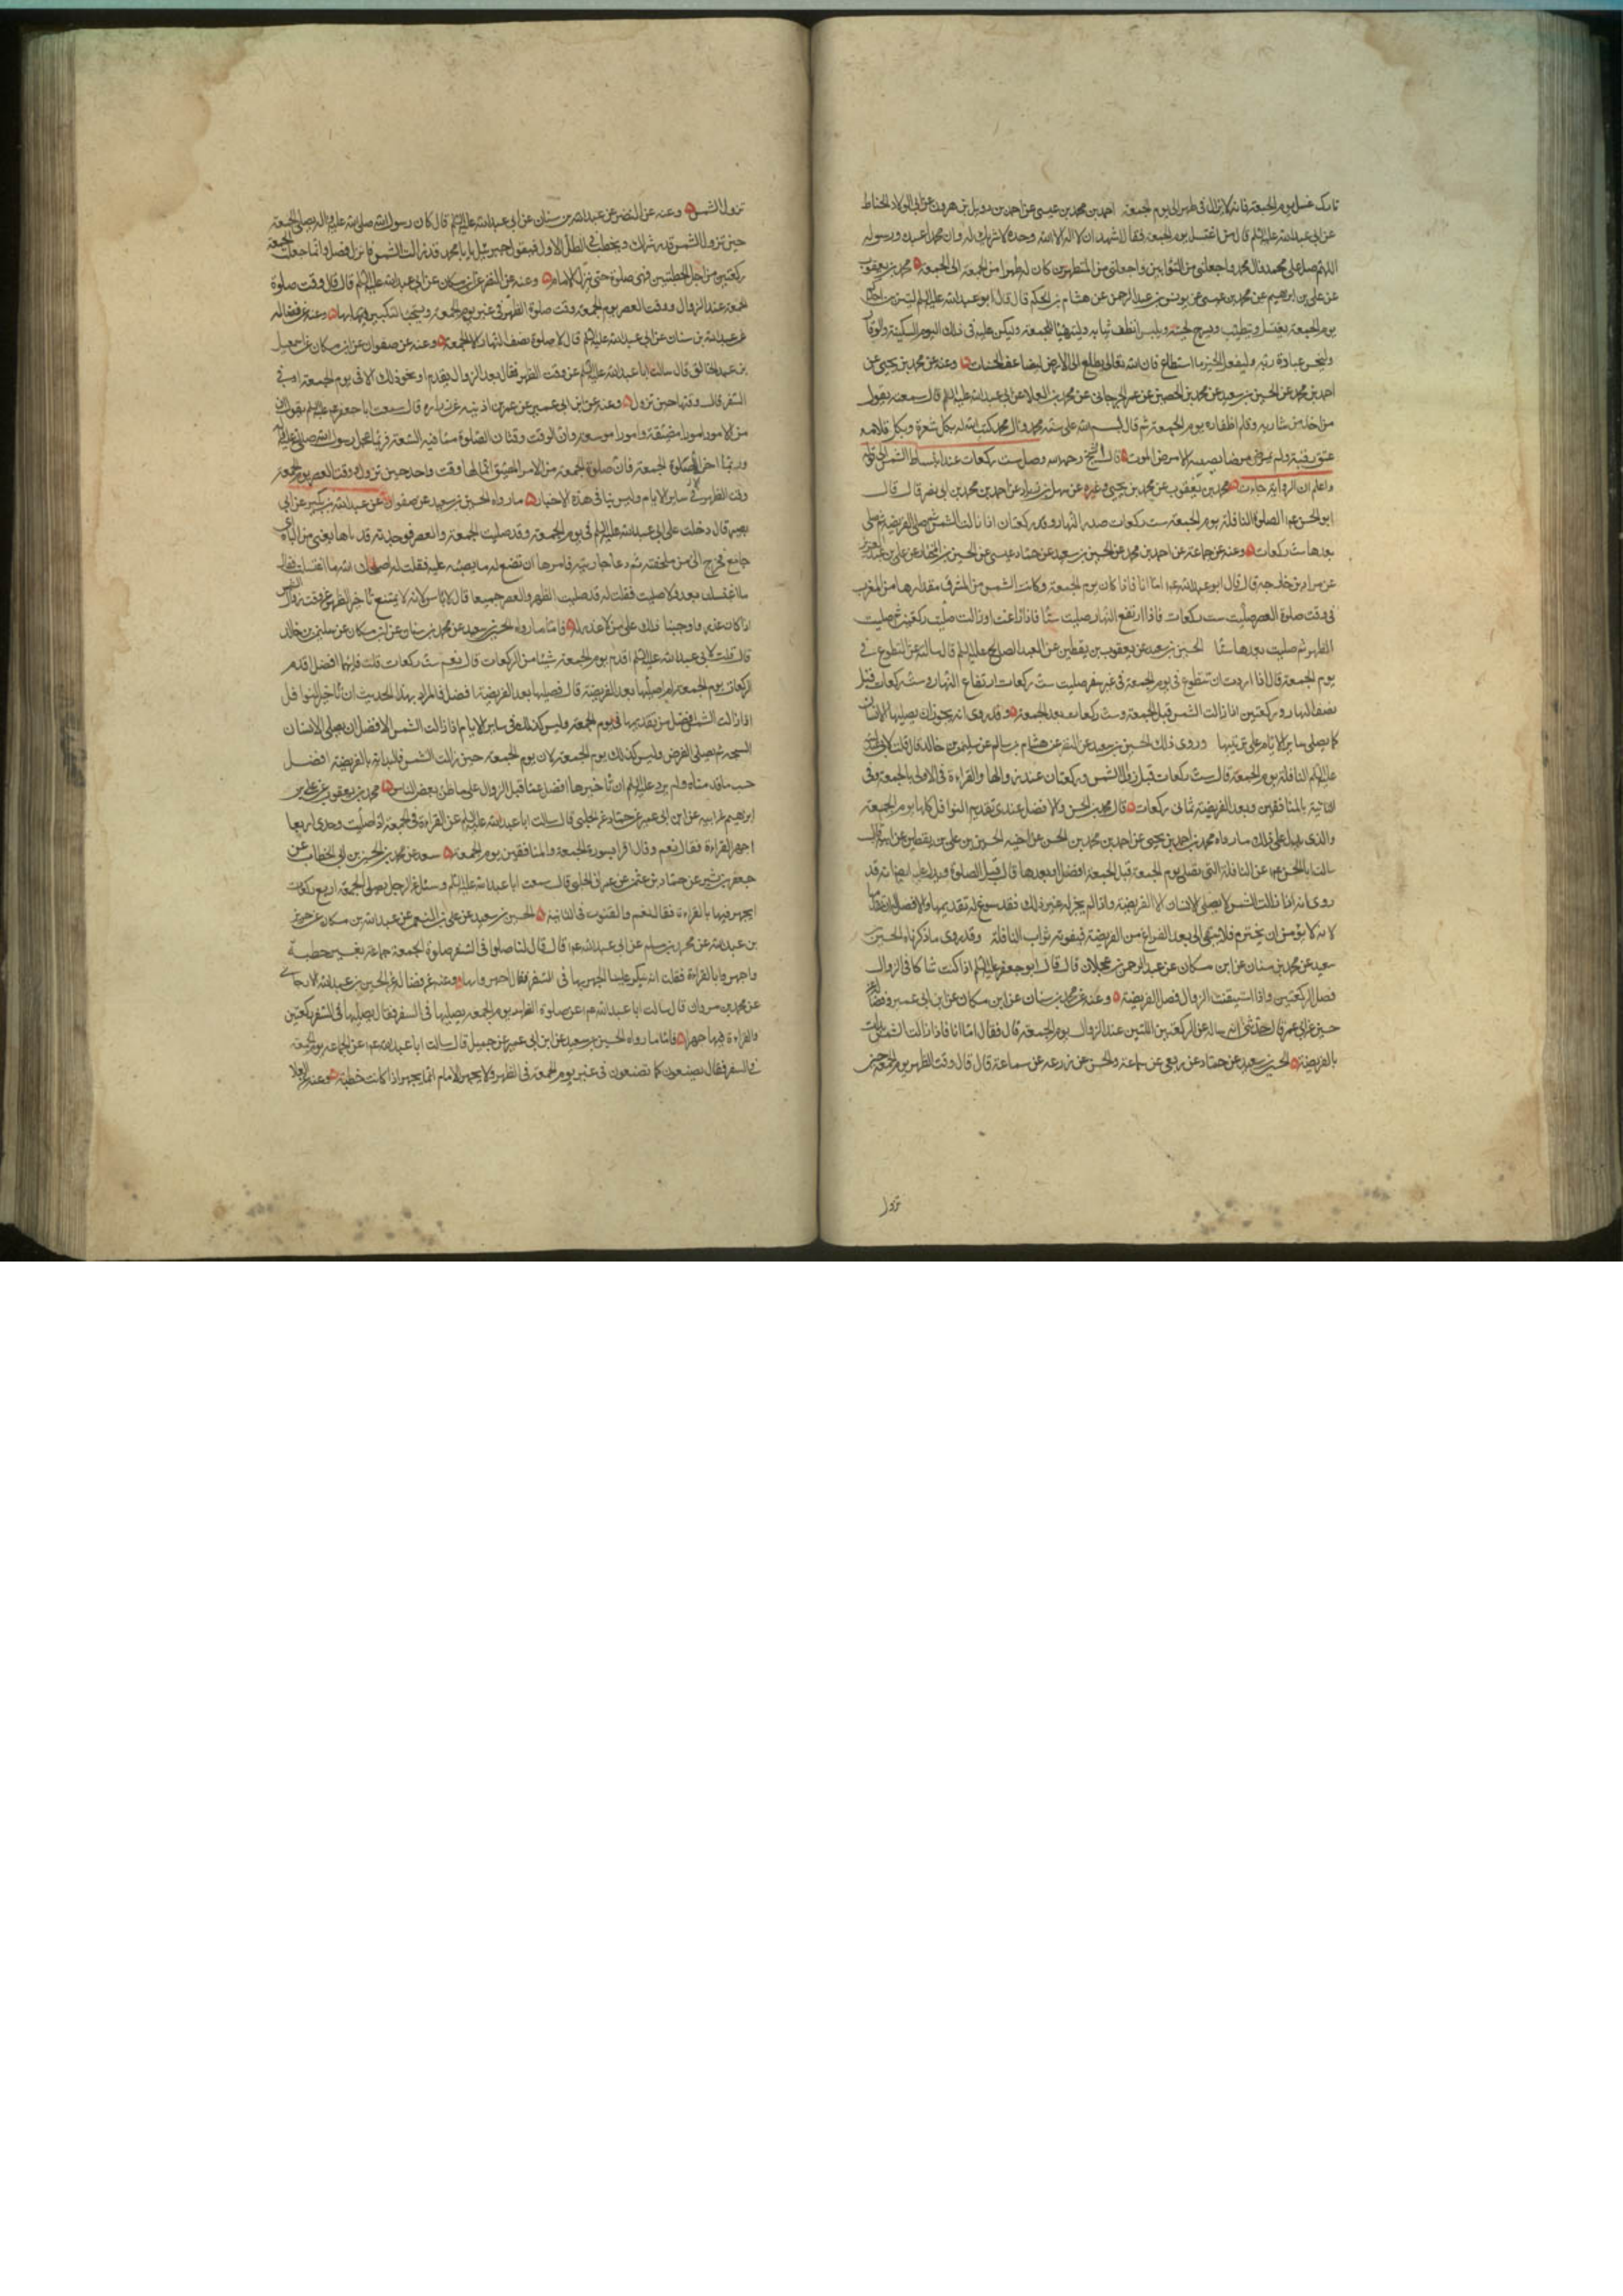 تارك غسل يوم الجمعة فانه لا يزال في طهر الى يوم الجمعة احمد بن محمد بن عيسى عن احمد بن دويل بن هرون عن ابي الولاد الحناط
عن ابي عبدالله عليه السلم قال من اغتسل يوم الجمعة فقال اشهد ان لا اله الا الله وحده لا شريك له وان محمدا عبدك ورسوله
اللهم صل على محمد وال محمد واجعلني من التوابين واجعلني من المتطهرين كان له طهرا من الجمعة الى الجمعة محمد بن يعقوب
عن علي بن ابراهيم عن محمد بن عيسى عن يونس بن عبد الرحمن عن هشام بن الحكم قال قال ابو عبدالله عليه السلم ليتزين احدكم
يوم الجمعة يغتسل ويتطيب ويسرح لحيته ويلبس انظف ثيابه وليتهيأ للجمعة وليكن عليه في ذلك اليوم السكينة والوقار
وليحسن عبادة ربه وليفعل الخير ما استطاع فان الله تعالى يطلع الى الارض ليضاعف الحسنات وعنه عن محمد بن يحيى عن
احمد بن محمد عن الحسين بن سعيد عن محمد بن الحصين عن عمر الجرجاني عن محمد بن العلا عن ابي عبدالله عليه السلم قال سمعته يقول
من اخذ من شاربه وقلم اظفاره يوم الجمعة ثم قال بسم الله على سنة محمد وال محمد كتب الله له بكل شعرة وبكل قلامة
عتق رقبة ولم يمرض مرضا يصيبه الا مرض الموت قال الشيخ رحمه الله وصل ست ركعات عند انبساط الشمس الى قوله
واعلم ان الرواية جاءت محمد بن يعقوب عن محمد بن يحيى وغيره عن سهل بن زياد عن احمد بن محمد بن ابي نصر قال قال
ابو الحسن ع الصلوة النافلة يوم الجمعة ست ركعات صدر النهار وركعتان اذا زالت الشمس ثم صلى الفريضة ثم صلى
بعدها ست ركعات وعنه عن جماعة عن احمد بن محمد عن الحسين بن سعيد عن حماد بن عيسى عن الحسين بن المختار عن علي بن عبد العزيز
عن مراد بن خارجة قال قال ابو عبدالله ع اما انا فاذا كان يوم الجمعة وكانت الشمس من المشرق مقدارها من المغرب
في وقت صلوة العصر صليت ست ركعات فاذا ارتفع النهار صليت ستا فاذا زاغت او زالت صليت ركعتين ثم صليت
الظهر ثم صليت بعدها ستا الحسين بن سعيد عن يعقوب بن يقطين عن العبد الصالح عليه السلم قال سالته عن التطوع في
يوم الجمعة قال اذا اردت ان تتطوع في يوم الجمعة في غير سفر صليت ست ركعات ارتفاع النهار وست ركعات قبل
نصف النهار وركعتين اذا زالت الشمس قبل الجمعة وست ركعات بعد الجمعة وقد روى انه يجوز ان يصليها الانسان
كما يصلي ساير الايام على ترتيبها وروى ذلك الحسين بن سعيد عن النضر عن هشام بن سالم عن سليمن بن خالد قال قلت لابي عبدالله
عليه السلم النافلة يوم الجمعة قال ست ركعات قبل زوال الشمس وركعتان عند زوالها والقراءة في الاولى بالجمعة وفي
الثانية بالمنافقين وبعد الفريضة ثماني ركعات قال محمد بن الحسن والافضل عندي تقديم النوافل كلها يوم الجمعة
والذي يدل على ذلك ما رواه محمد بن احمد بن يحيى عن احمد بن محمد بن الحسن عن اخيه الحسين بن علي بن يقطين عن ابيه قال
سالت ابا الحسن ع عن النافلة التي تصلى يوم الجمعة قبل الجمعة افضل او بعدها قال قبل الصلوة
روى انه اذا زالت الشمس لا يصلي الانسان الا الفريضة واذا لم يجز له غير ذلك فقد سوغ له تقديمها والافضل
لانه لا يؤمن ان يخترم فلا يبقى الى بعد الفراغ من الفريضة فيفوته ثواب النافلة وقد روى ما ذكرناه الحسين بن
سعيد عن محمد بن سنان عن ابن مسكان عن عبد الرحمن بن عجلان قال قال ابو جعفر عليه السلم اذا كنت شاكا في الزوال
فصل الركعتين واذا استيقنت الزوال فصل الفريضة وعنه عن محمد بن سنان عن ابن مسكان عن ابن ابي عمير وفضالة
حسين عن ابي عمر قال حدثني انه ساله عن الركعتين اللتين عند الزوال يوم الجمعة قال فقال اما انا فاذا زالت الشمس بدات
بالفريضة الحسين بن سعيد عن حماد عن ربعي عن سماعة والحسن عن زرعة عن سماعة قال قال وقت الظهر يوم الجمعة حين
تزول
تزول الشمس وعنه عن النضر عن عبدالله بن سنان عن ابي عبدالله عليه السلم قال كان رسول الله صلى الله عليه واله يصلي الجمعة
حين تزول الشمس قدر شراك ويخطب في الظل الاول فيقول جبرئيل يا محمد قد زالت الشمس فانزل فصل وانما جعلت الجمعة
ركعتين من اجل الخطبتين فهي صلوة حتى ينزل الامام وعنه عن النضر عن ابن مسكان عن ابي عبدالله عليه السلم قال قال وقت صلوة
الجمعة عند الزوال ووقت العصر يوم الجمعة وقت صلوة الظهر في غير يوم الجمعة ويستحب التكبير بها وعنه عن فضالة
عن عبدالله بن سنان عن ابي عبدالله عليه السلم قال لا صلوة نصف النهار الا الجمعة وعنه عن صفوان عن ابن مسكان عن اسمعيل
بن عبد الخالق قال سالت ابا عبدالله عليه السلم عن وقت الظهر فقال بعد الزوال بقدم او نحو ذلك الا في يوم الجمعة او في
السفر فان وقتها حين تزول وعنه عن ابن ابي عمير عن عمر بن اذينة عن زرارة قال سمعت ابا جعفر عليه السلم يقول ان
من الامور امورا مضيقة وامورا موسعة وان الوقت وقتان الصلوة مما فيه السعة فربما عجل رسول الله صلى الله عليه واله
وربما اخر الا صلوة الجمعة فان صلوة الجمعة من الامر المضيق انما لها وقت واحد حين تزول ووقت العصر يوم الجمعة
وقت الظهر في ساير الايام وليس ينافي هذه الاخبار ما رواه الحسين بن سعيد عن صفوان عن عبدالله بن بكير عن ابي
بصير قال دخلت على ابي عبدالله عليه السلم في يوم الجمعة وقد صليت الجمعة والعصر فوجدته قد باها يعني من الباه اي
جامع فخرج الي من ملحفته ثم دعا جاريته فامرها ان تضع له ما يصبه عليه فقلت له اصلحك الله ما اغتسلت فقال
ما اغتسلت بعد ولا صليت فقلت له قد صليت الظهر والعصر جميعا قال لا باس لانه لا يمتنع تاخير الظهر عن وقت زوال الشمس
اذا كان عذر واوجبنا ذلك على من لا عذر له فاما ما رواه الحسين بن سعيد عن محمد بن سنان عن ابن مسكان عن سليمن بن خالد
قال قلت لابي عبدالله عليه السلم اقدم يوم الجمعة شيئا من الركعات قال نعم ست ركعات قلت فايهما افضل اقدم
الركعات يوم الجمعة ام اصليها بعد الفريضة قال تصليها بعد الفريضة افضل فالمراد بهذا الحديث ان تاخير النوافل
اذا زالت الشمس افضل من تقديمها في يوم الجمعة وليس كذلك في ساير الايام اذا زالت الشمس الافضل ان يصلي الانسان
السبحة ثم يصلي الفرض وليس كذلك يوم الجمعة لان يوم الجمعة حين زالت الشمس فالبداية بالفريضة افضل
حسب ما قدمناه ولم يرد عليه السلم ان تاخيرها افضل مما قبل الزوال على ما ظن بعض الناس محمد بن يعقوب عن علي بن
ابراهيم عن ابيه عن ابن ابي عمير عن حماد عن الحلبي قال سالت ابا عبدالله عليه السلم عن القراءة في الجمعة اذا صليت وحدي اربعا
اجهر بالقراءة فقال نعم وقال اقرا بسورة الجمعة والمنافقين يوم الجمعة سعد عن محمد بن الحسين بن ابي الخطاب عن
جعفر بن بشير عن حماد بن عثمن عن عمران الحلبي قال سمعت ابا عبدالله عليه السلم وسئل عن الرجل يصلي الجمعة اربع ركعات
ايجهر فيها بالقراءة فقال نعم والقنوت في الثانية الحسين بن سعيد عن علي بن النعمن عن عبدالله بن مسكان عن حريز
بن عبدالله عن محمد بن مسلم عن ابي عبدالله ع قال قال لنا صلوا في السفر صلوة الجمعة جماعة بغير خطبة
واجهروا بالقراءة فقلت انه ينكر علينا الجهر بها في السفر فقال اجهروا بها وعنه عن فضالة عن الحسين بن عبدالله الارجاني
عن محمد بن مروان قال سالت ابا عبدالله ع عن صلوة الظهر يوم الجمعة يصليها في السفر فقال يصليها في السفر ركعتين
والقراءة فيها جهرا فاما ما رواه الحسين بن سعيد عن ابن ابي عمير عن جميل قال سالت ابا عبدالله ع عن الجماعة يوم الجمعة
في السفر فقال يصنعون كما تصنعون في غير يوم الجمعة في الظهر ولا يجهر الامام انما يجهر اذا كانت خطبة وعنه عن العلا